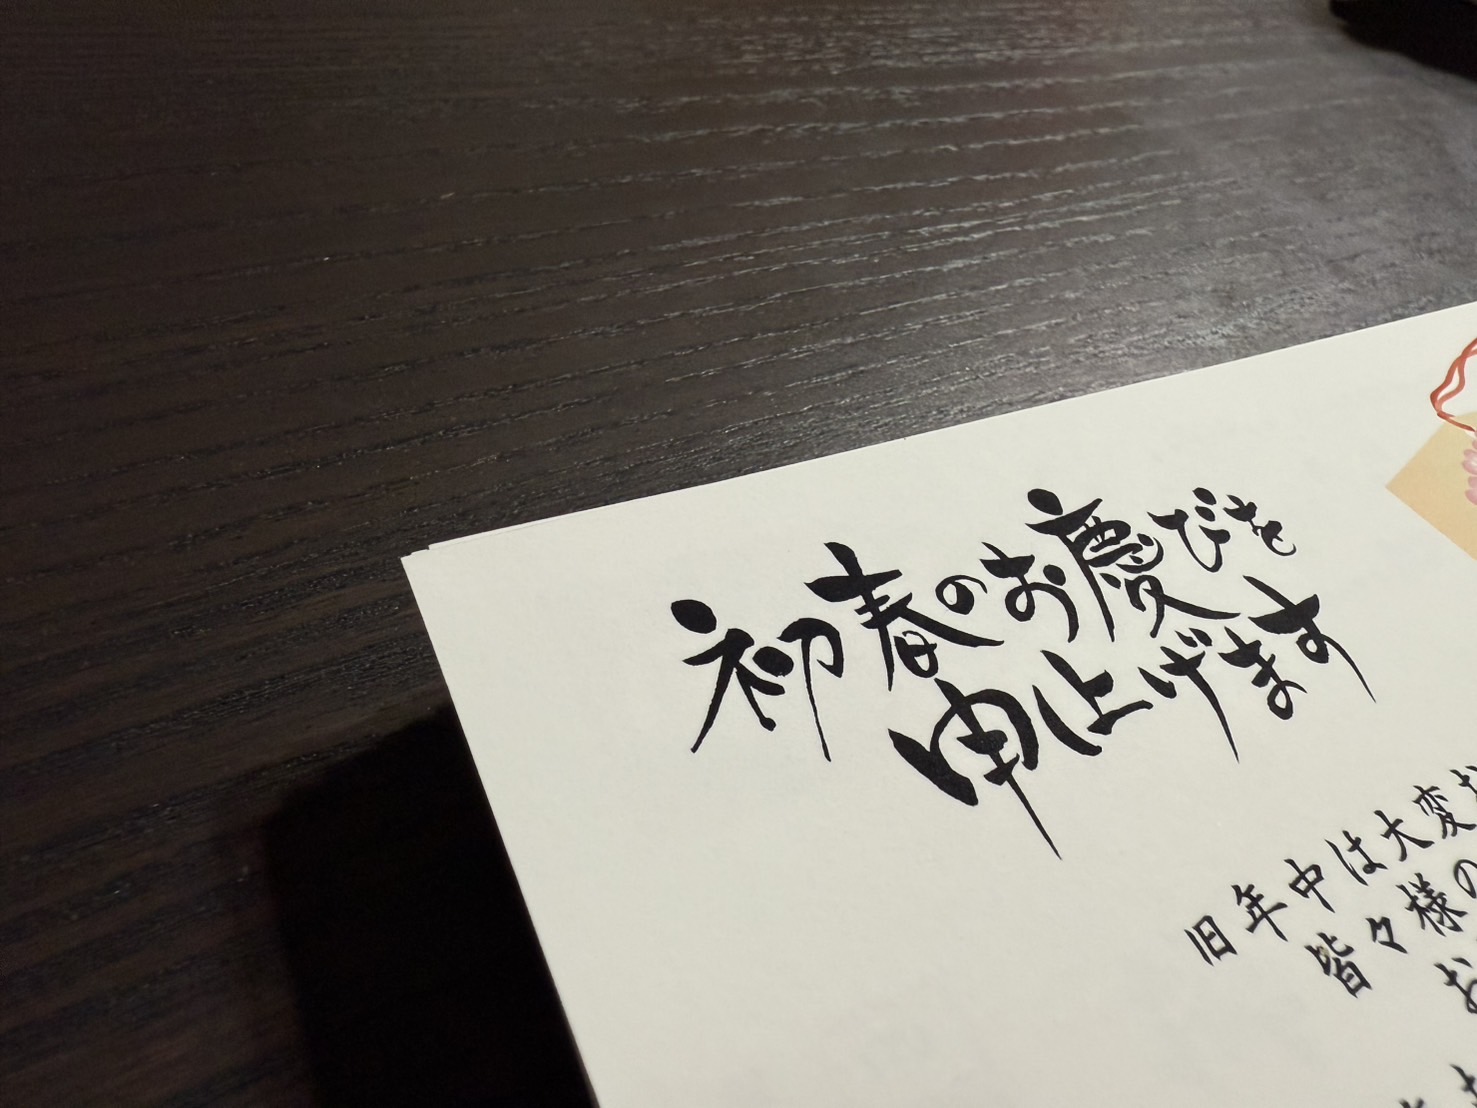 初春のお慶びを
申し上げます
旧年中は大変
皆々様の
お